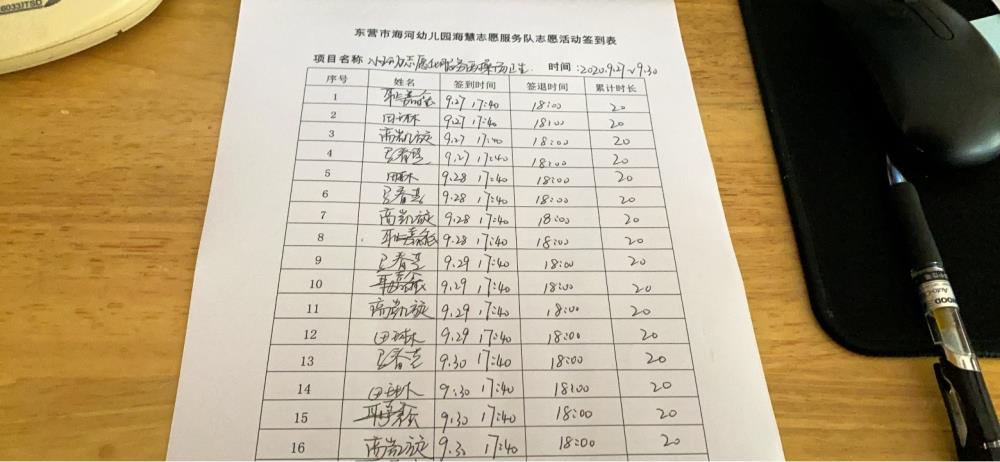 东营市海河幼儿园海慧志愿服务队志愿活动签到表
项目名称 志愿服务 操场卫生 时间:2020.9.27~9.30
序号 姓名 签到时间 签退时间 累计时长
1 9.27 17:40 18:00 20
2 田琳 9.27 17:40 18:00 20
3 商凯旋 9.27 17:40 18:00 20
4 9.27 17:40 18:00 20
5 田琳 9.28 17:40 18:00 20
6 9.28 17:40 18:00 20
7 商凯旋 9.28 17:40 18:00 20
8 9.28 17:40 18:00 20
9 9.29 17:40 18:00 20
10 9.29 17:40 18:00 20
11 商凯旋 9.29 17:40 18:00 20
12 田琳 9.29 17:40 18:00 20
13 9.30 17:40 18:00 20
14 田琳 9.30 17:40 18:00 20
15 9.30 17:40 18:00 20
16 商凯旋 9.30 17:40 18:00 20